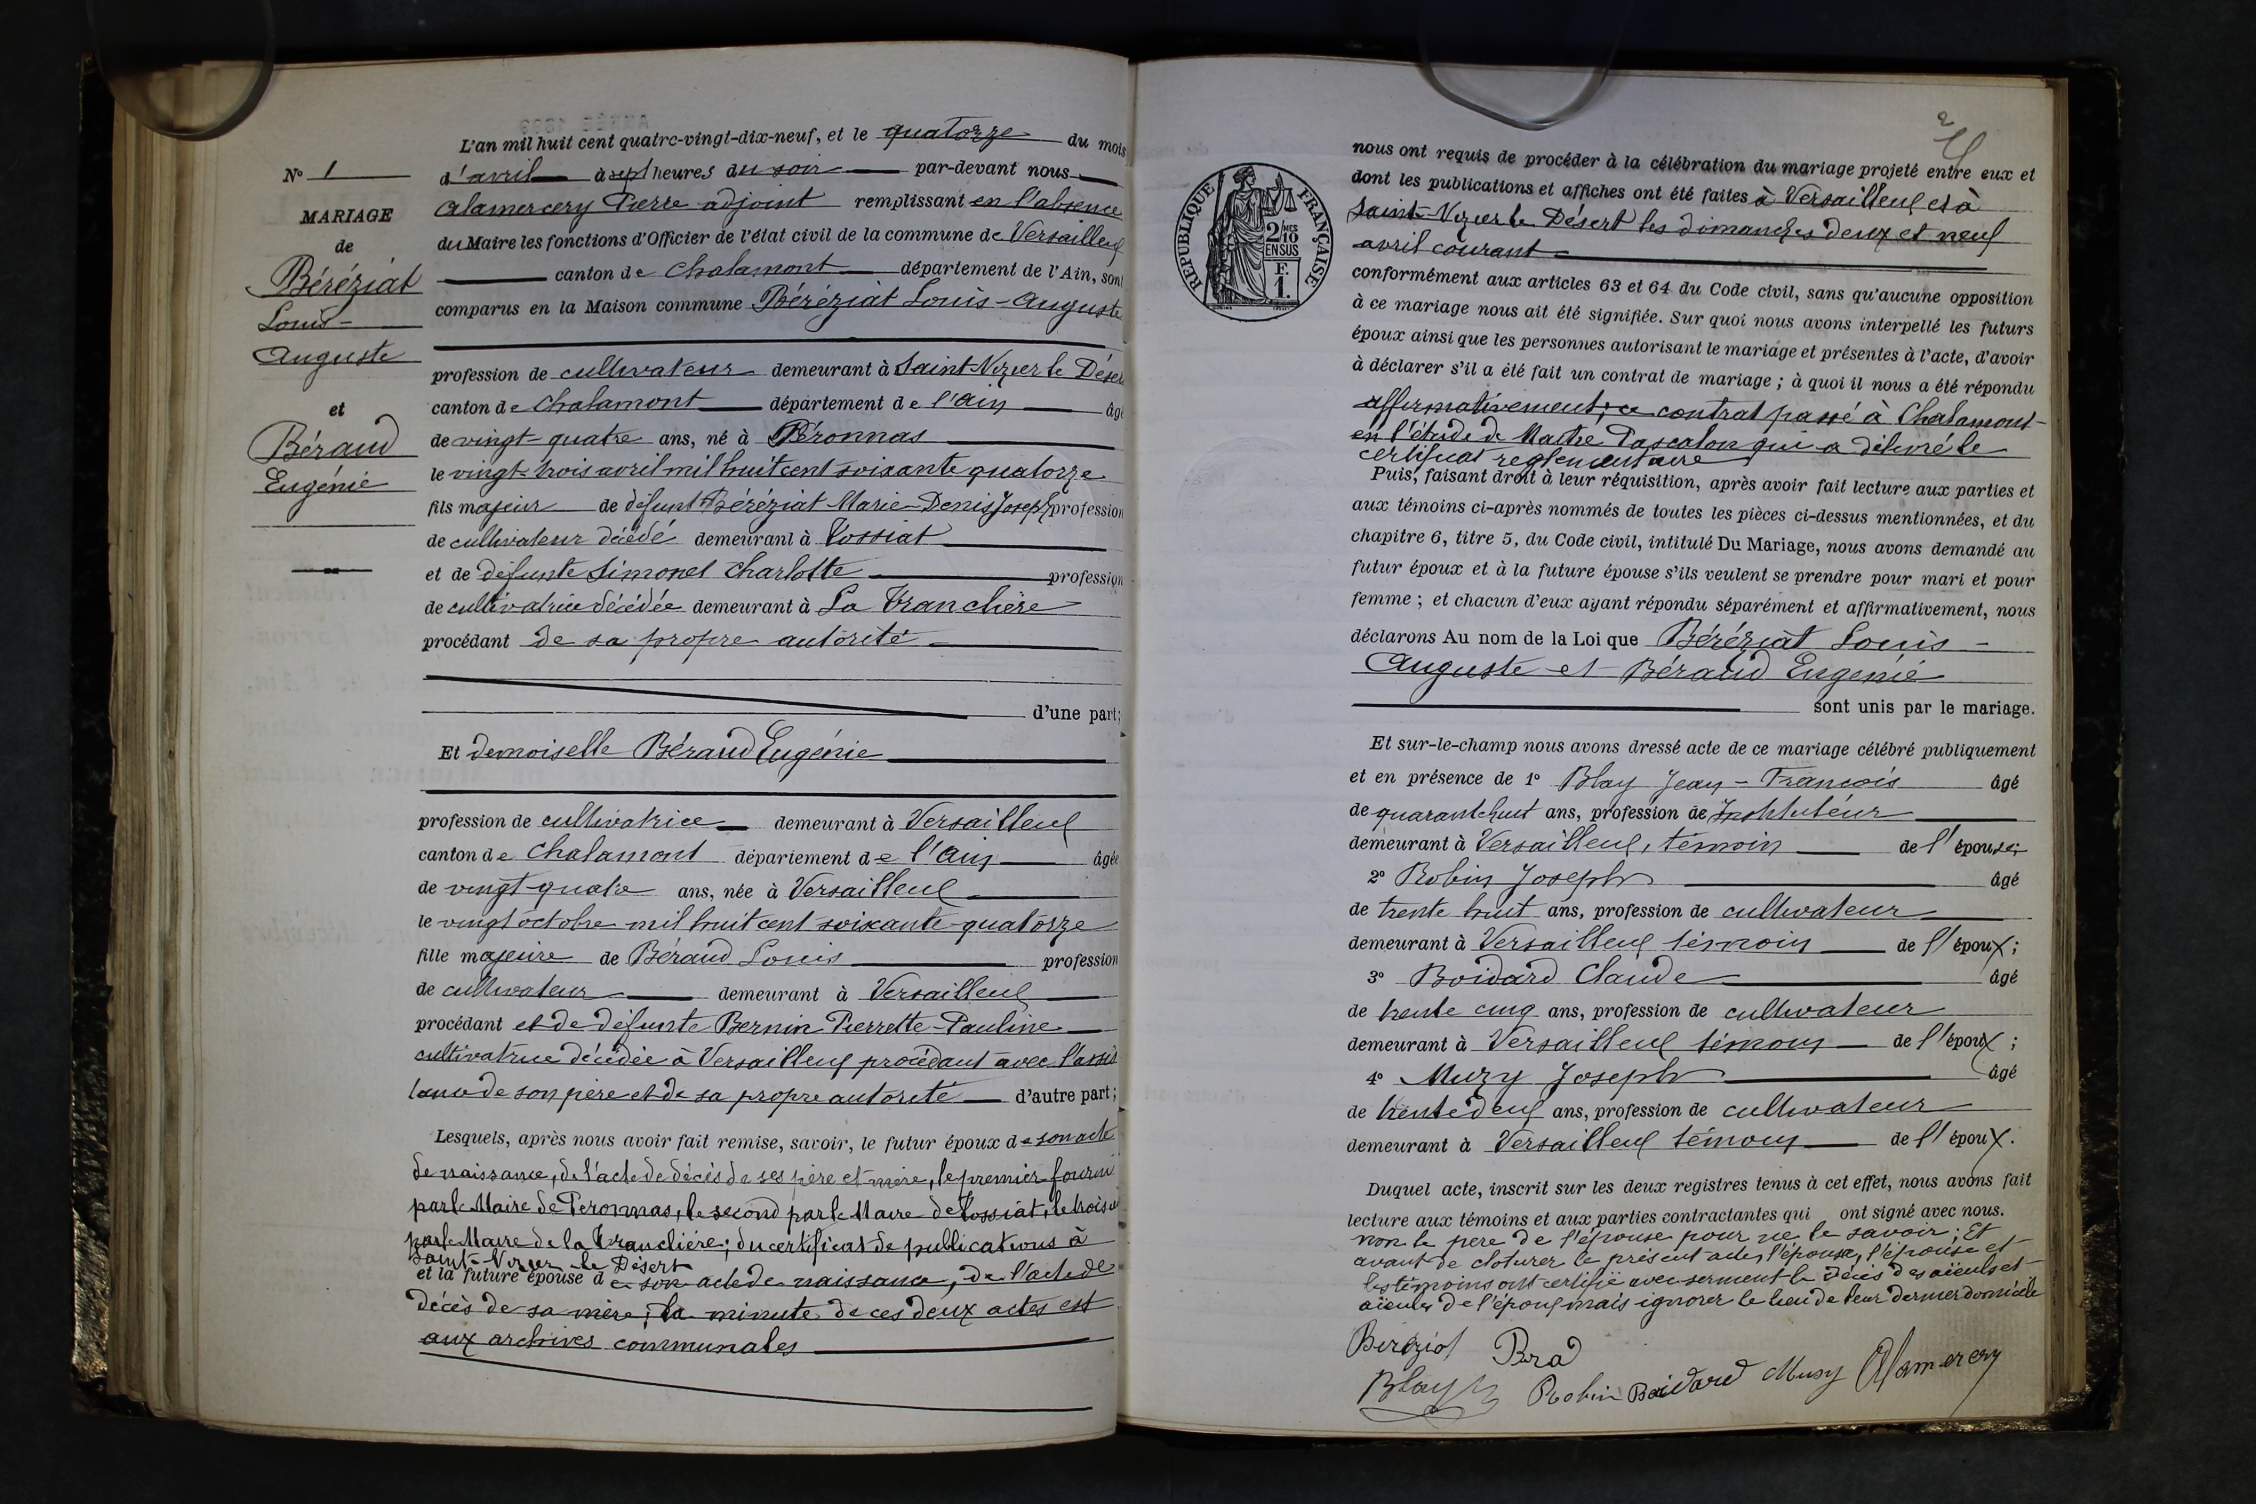 N° 1
MARIAGE
de
Béréziat
Louis-
Auguste
et
Béraud
Eugénie
L'an mil huit cent quatre-vingt-dix-neuf, et le quatorze du mois
d'avril à sept heures du soir par-devant nous
Alamercery Pierre adjoint remplissant en l'absence
du Maire les fonctions d'Officier de l'état civil de la commune de Versailleux
canton de Chalamont département de l'Ain, sont
comparus en la Maison commune Béréziat Louis-Auguste
profession de cultivateur demeurant à Saint-Nizier le Désert
canton de Chalamont département de l'Ain âgé
de vingt-quatre ans, né à Péronnas
le vingt-trois avril mil huit cent soixante quatorze
fils majeur de défunt Béréziat Marie-Denis Joseph profession
de cultivateur décédé demeurant à Tossiat
et de défunte Simonet Charlotte profession
de cultivatrice décédée demeurant à La Tranclière
procédant de sa propre autorité
d'une part;
Et demoiselle Béraud Eugénie
profession de cultivatrice demeurant à Versailleux
canton de Chalamont département de l'Ain âgée
de vingt-quatre ans, née à Versailleux
le vingt octobre mil huit cent soixante-quatorze
fille majeure de Béraud Louis profession
de cultivateur demeurant à Versailleux
procédant et de défunte Bernin Pierrette-Pauline
cultivatrice décédée à Versailleux procédant avec l'assis
tance de son père et de sa propre autorité d'autre part;
Lesquels, après nous avoir fait remise, savoir, le futur époux de son acte
de naissance, de l'acte de décès de ses père et mère, le premier fourni
par le Maire de Péronnas, le second par le Maire de Tossiat, le troisième
par le Maire de la Tranclière; du certificat de publications à
Saint-Nizier-le Désert
et la future épouse de son acte de naissance, de l'acte de
décès de sa mère; la minute de ces deux actes est
aux archives communales
2
RÉPUBLIQUE FRANÇAISE
2/10 EN SUS
F. 1.
nous ont requis de procéder à la célébration du mariage projeté entre eux et
dont les publications et affiches ont été faites à Versailleux et à
Saint-Nizier le Désert les dimanches deux et neuf
avril courant
conformément aux articles 63 et 64 du Code civil, sans qu'aucune opposition
à ce mariage nous ait été signifiée. Sur quoi nous avons interpellé les futurs
époux ainsi que les personnes autorisant le mariage et présentes à l'acte, d'avoir
à déclarer s'il a été fait un contrat de mariage; à quoi il nous a été répondu
affirmativement; ce contrat passé à Chalamont
en l'étude de Maître Pascalon qui a délivré le
certificat reglementaire
Puis, faisant droit à leur réquisition, après avoir fait lecture aux parties et
aux témoins ci-après nommés de toutes les pièces ci-dessus mentionnées, et du
chapitre 6, titre 5, du Code civil, intitulé Du Mariage, nous avons demandé au
futur époux et à la future épouse s'ils veulent se prendre pour mari et pour
femme; et chacun d'eux ayant répondu séparément et affirmativement, nous
déclarons Au nom de la Loi que Béréziat Louis-
Auguste et Béraud Eugénie
sont unis par le mariage.
Et sur-le-champ nous avons dressé acte de ce mariage célébré publiquement
et en présence de 1° Blay Jean-François âgé
de quarante huit ans, profession de Instituteur
demeurant à Versailleux, témoin de l'épouse;
2° Robin Joseph âgé
de trente huit ans, profession de cultivateur
demeurant à Versailleux témoin de l'époux;
3° Boidard Claude âgé
de trente cinq ans, profession de cultivateur
demeurant à Versailleux témoin de l'époux;
4° Muzy Joseph âgé
de trente deux ans, profession de cultivateur
demeurant à Versailleux témoin de l'époux.
Duquel acte, inscrit sur les deux registres tenus à cet effet, nous avons fait
lecture aux témoins et aux parties contractantes qui ont signé avec nous.
non le père de l'épouse pour ne le savoir; Et
avant de cloturer le présent acte, l'épouse, l'épouse et
les témoins ont certifié avec serment le décès des aïeuls et
aïeules de l'époux mais ignorer le lieu de leur dernier domicile
Béréziat Bra
Blay Robin Boidard Musy Alamercery